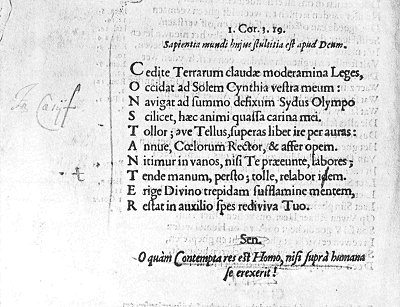 1. Cor. 3. 19.
Sapientia mundi hujus stultitia est apud Deum.
Cedite Terrarum claudæ moderamina Leges,
Occidat ad Solem Cynthia vestra meum:
Navigat ad summo defixum Sydus Olympo
Scilicet, hæc animi quassa carina mei.
Tollor; ave Tellus, superas libet ire per auras:
Annue, Cœlorum Rector, & affer opem.
Nitimur in vanos, nisi Te præeunte, labores;
Tende manum, persto; tolle, relabor idem.
Erige Divino trepidam sufflamine mentem,
Restat in auxilio spes rediviva Tuo.
Sen.
O quàm Contempta res est Homo, nisi suprà humana
se erexerit!